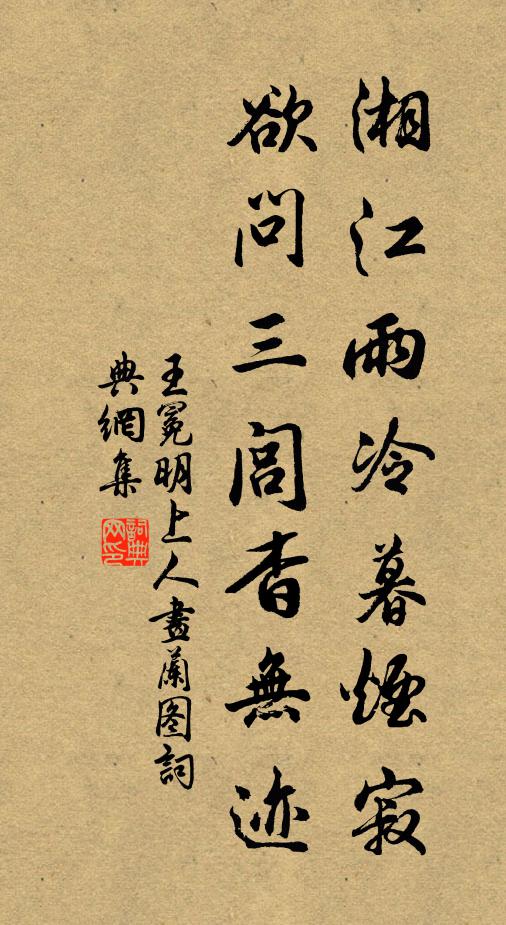 湘江雨冷暮煙寂
欲問三閭杳無迹
王冕明上人畫蘭图詞
典網集
詞典
网印